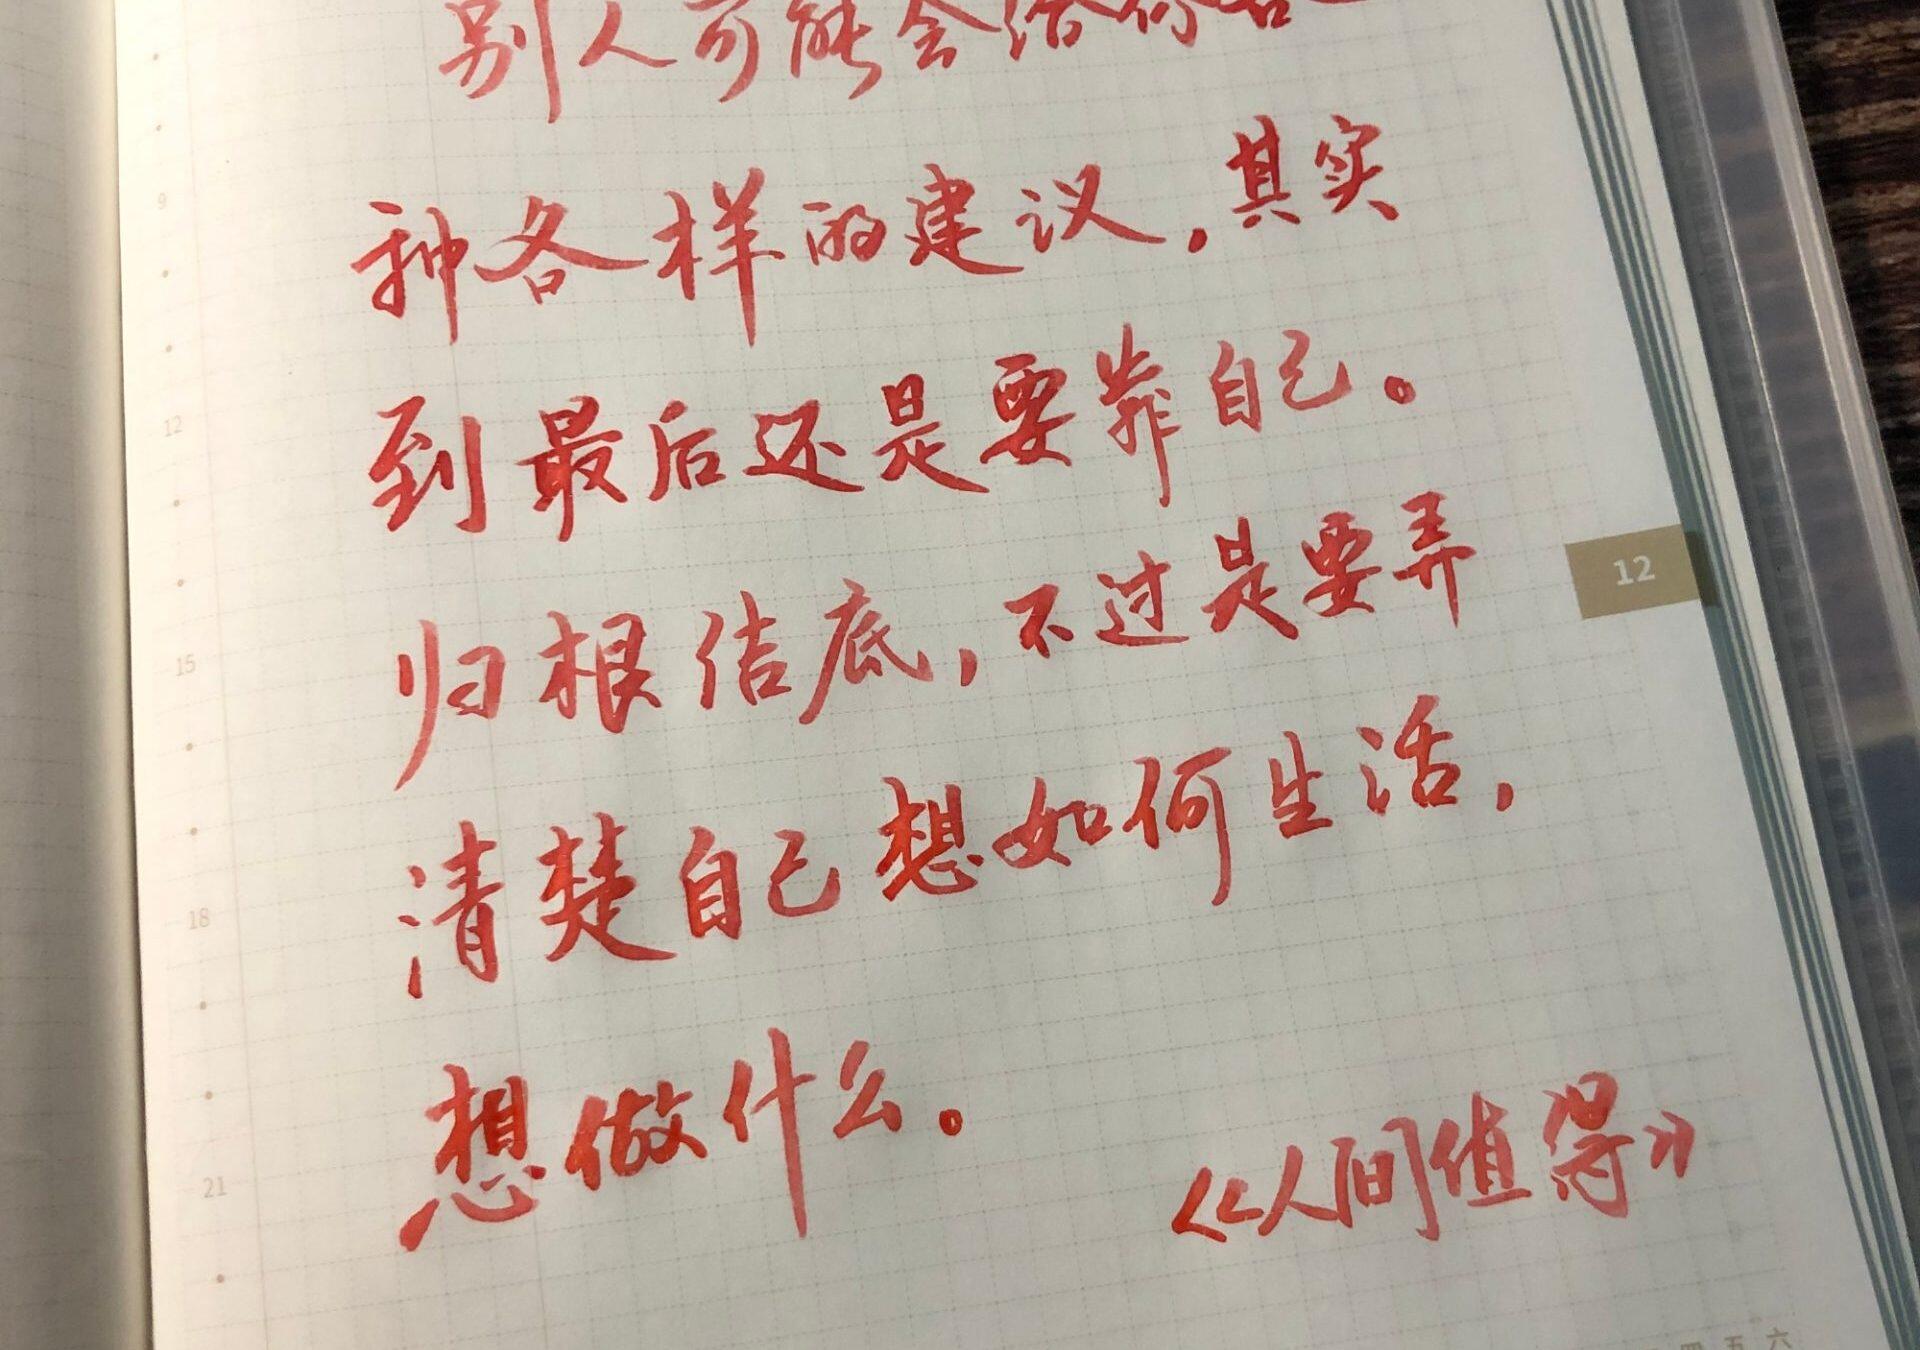 别人可能会给你各
种各样的建议，其实
到最后还是要靠自己。
归根结底，不过是要弄
清楚自己想如何生活，
想做什么。
《人间值得》
9
12
15
18
21
12
四 五 六